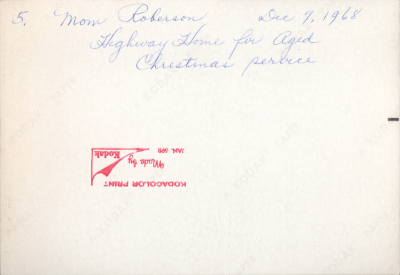 5. Mom Roberson Dec 7, 1968
Highway Home for Aged
Christmas service
JAN. 69R
Made by
Kodak
KODACOLOR PRINT